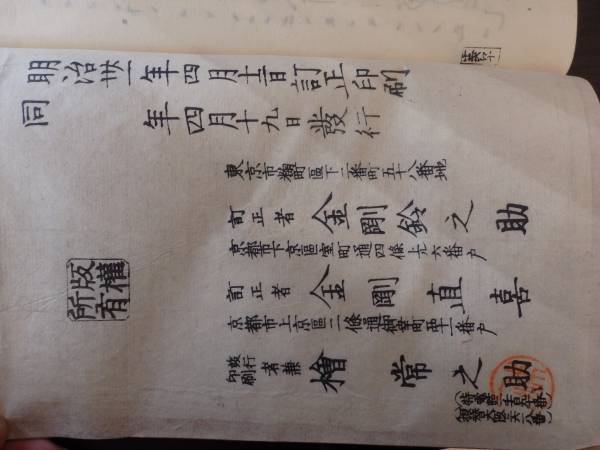 明治卅一年四月十三日訂正印刷
同年四月十九日發行
東京市麹町區下二番町五十八番地
訂正者 金剛鈴之助
京都市下京區室町通四條上ル六番戸
訂正者 金剛直喜
京都市上京區二條通
發行兼印刷者 檜常之助
版權所有